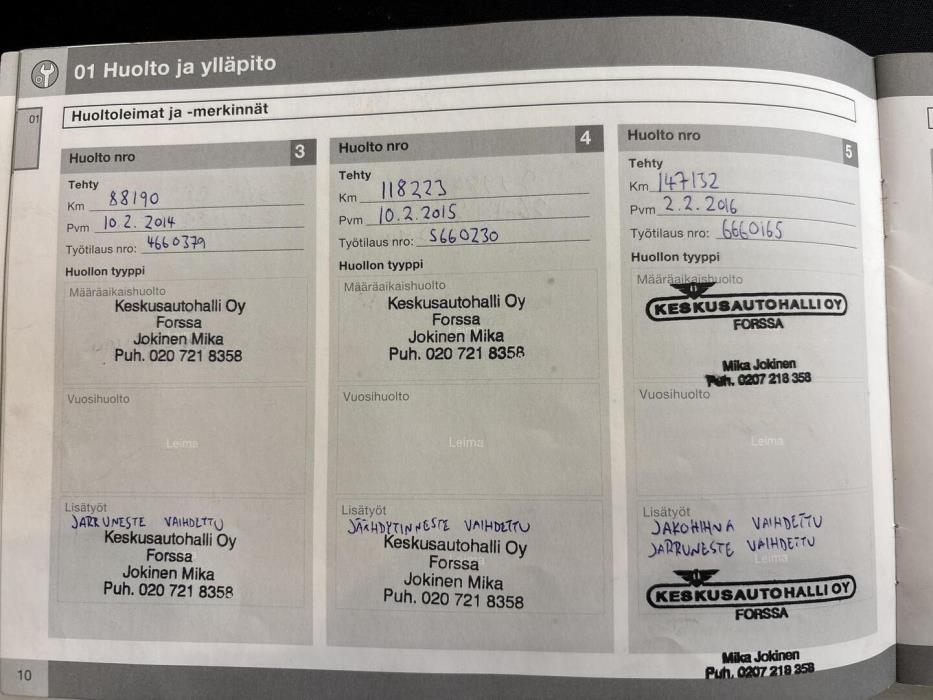 01 Huolto ja ylläpito
01
Huoltoleimat ja -merkinnät
Huolto nro 3
Tehty
Km 88190
Pvm 10.2.2014
Työtilaus nro: 4660379
Huollon tyyppi
Määräaikaishuolto
Keskusautohalli Oy
Forssa
Jokinen Mika
Puh. 020 721 8358
Vuosihuolto
Leima
Lisätyöt
JARRUNESTE VAIHDETTU
Keskusautohalli Oy
Forssa
Jokinen Mika
Puh. 020 721 8358
Huolto nro 4
Tehty
Km 118223
Pvm 10.2.2015
Työtilaus nro: 5660230
Huollon tyyppi
Määräaikaishuolto
Keskusautohalli Oy
Forssa
Jokinen Mika
Puh. 020 721 8358
Vuosihuolto
Leima
Lisätyöt
JÄÄHDYTINNESTE VAIHDETTU
Keskusautohalli Oy
Forssa
Jokinen Mika
Puh. 020 721 8358
Huolto nro 5
Tehty
Km 147132
Pvm 2.2.2016
Työtilaus nro: 6660165
Huollon tyyppi
Määräaikaishuolto
KESKUSAUTOHALLI OY
FORSSA
Mika Jokinen
Puh. 0207 218 358
Vuosihuolto
Leima
Lisätyöt
JAKOHIHNA VAIHDETTU
JARRUNESTE VAIHDETTU
Leima
KESKUSAUTOHALLI OY
FORSSA
Mika Jokinen
Puh. 0207 218 358
10